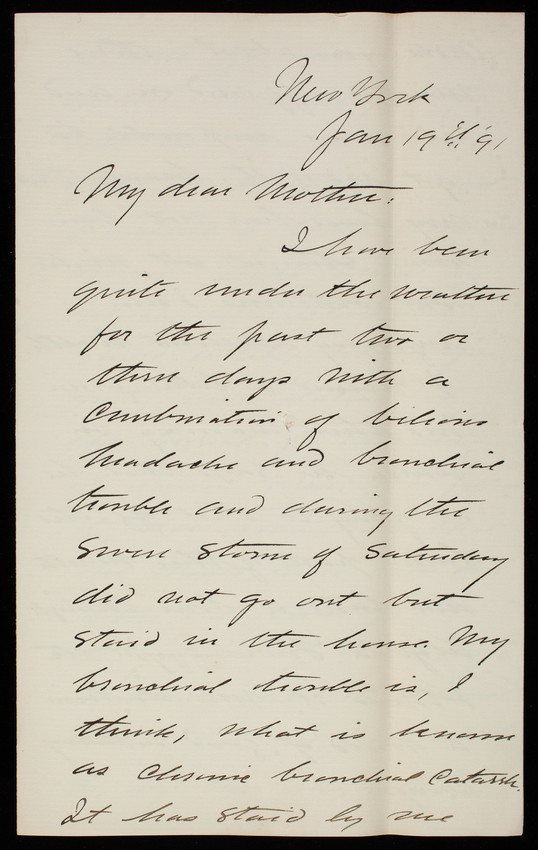 New York
Jan 19th '91
My dear Mother:
I have been
quite under the weather
for the past two or
three days with a
combination of bilious
headache and bronchial
trouble and during the
severe storm of Saturday
did not go out but
staid in the house. My
bronchial trouble is, I
think, what is known
as chronic bronchial catarrh.
It has staid by me